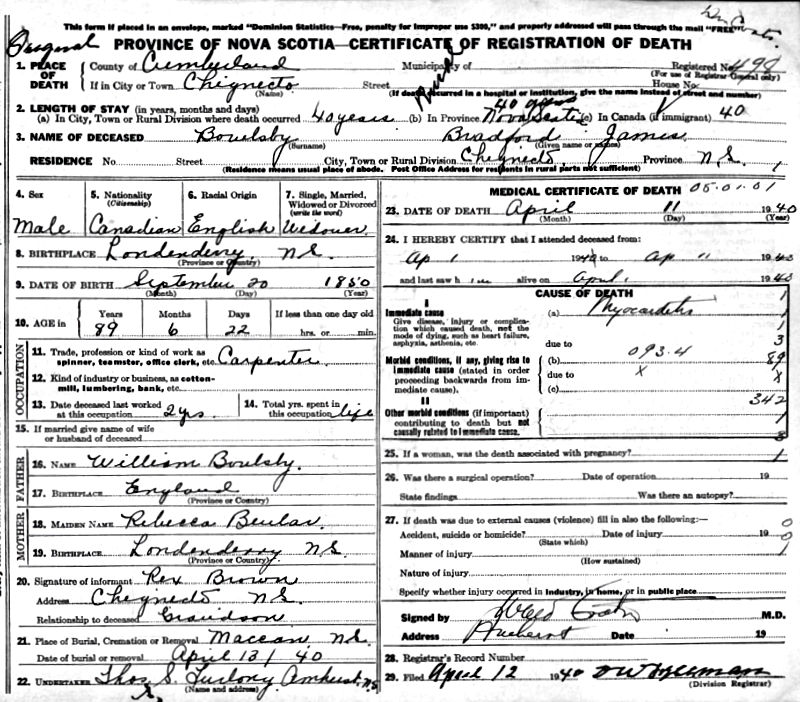 This form if placed in an envelope, marked "Dominion Statistics—Free, penalty for improper use $300," and properly addressed will pass through the mail "FREE"
Original PROVINCE OF NOVA SCOTIA—CERTIFICATE OF REGISTRATION OF DEATH
1. PLACE OF DEATH County of Cumberland Municipality of Registered No. 498
(For use of Registrar General only)
If in City or Town Chignecto Street House No.
(Name) (If death occurred in a hospital or institution, give name instead of street and number)
2. LENGTH OF STAY (in years, months and days) 40 years
(a) In City, Town or Rural Division where death occurred 40 years (b) In Province Nova Scotia (c) In Canada (if immigrant) 40
3. NAME OF DECEASED Boulsby Bradford James
(Surname) (Given name or names)
RESIDENCE No. Street City, Town or Rural Division Chignecto, Province N.S. 1
(Residence means usual place of abode. Post Office Address for residents in rural parts not sufficient)
4. Sex 5. Nationality (Citizenship) 6. Racial Origin 7. Single, Married, Widowed or Divorced (write the word)
Male Canadian English Widower
8. BIRTHPLACE Londenderry N.S.
(Province or Country)
9. DATE OF BIRTH September 20 1850
(Month) (Day) (Year)
10. AGE in Years Months Days If less than one day old
89 6 22 hrs. or min.
OCCUPATION
11. Trade, profession or kind of work as spinner, teamster, office clerk, etc. Carpenter
12. Kind of industry or business, as cotton-mill, lumbering, bank, etc.
13. Date deceased last worked at this occupation 2 yrs. 14. Total yrs. spent in this occupation life
15. If married give name of wife or husband of deceased
FATHER
16. NAME William Boulsby.
17. BIRTHPLACE England
(Province or Country)
MOTHER
18. MAIDEN NAME Rebecca
19. BIRTHPLACE Londenderry N.S.
(Province or Country)
20. Signature of informant Rex Brown
Address Chignecto N.S.
Relationship to deceased Grandson
21. Place of Burial, Cremation or Removal Maccan N.S.
Date of burial or removal April 13/40
22. UNDERTAKER Thos. S. Furlong Amherst, N.S.
(Name and address)
MEDICAL CERTIFICATE OF DEATH 05.01.01
23. DATE OF DEATH April 11 1940
(Month) (Day)
24. I HEREBY CERTIFY that I attended deceased from:
Ap 1 1940 to Ap 11 1940
and last saw him alive on April, 1940
CAUSE OF DEATH 1
I
Immediate cause (a) Myocarditis 1
Give disease, injury or complication which caused death, not the mode of dying, such as heart failure, asphyxia, asthenia, etc.
1
3
due to
093.4
Morbid conditions, if any, giving rise to immediate cause (stated in order proceeding backwards from immediate cause).
(b) 89
due to X X
(c)
342
II
Other morbid conditions (if important) contributing to death but not causally related to immediate cause.
1
3
25. If a woman, was the death associated with pregnancy? 1
26. Was there a surgical operation? Date of operation 19
State findings Was there an autopsy?
27. If death was due to external causes (violence) fill in also the following:—
Accident, suicide or homicide? Date of injury 19 0
(State which) 0
Manner of injury 1
(How sustained)
Nature of injury
Specify whether injury occurred in industry, in home, or in public place
Signed by M.D.
Address Amherst Date 19
28. Registrar's Record Number
29. Filed April 12 1940
(Division Registrar)